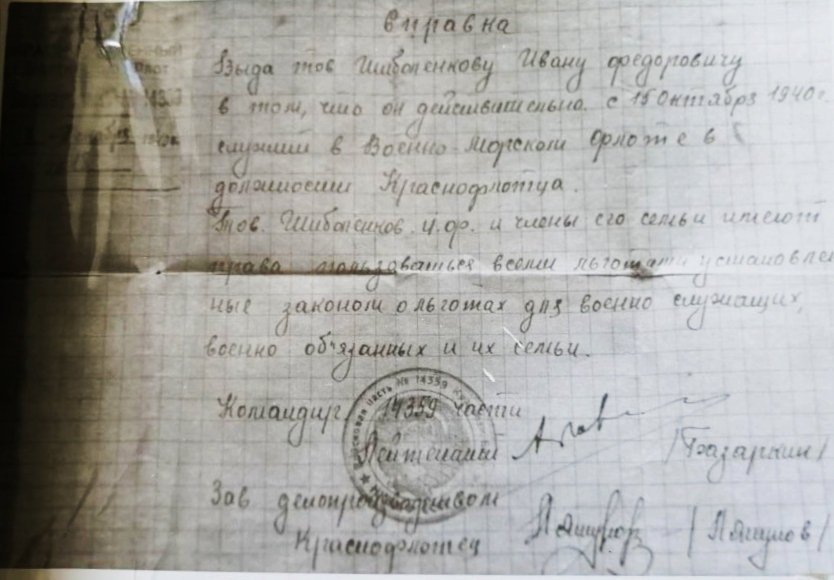 справка
Выда тов Шибаенкову Ивану Федоровичу
в том, что он действительно. с 15 Октября 1940 г
служит в Военно-Морском Флоте в
должности Краснофлотца.
Тов. Шибаенков. И.Ф. и члены его семьи имеют
права пользаваться всеми льготами установлен
ные законом о льготах для военно служащих,
военно обязанных и их семьи.
Командир 14359 части
Лейтенант /Базаркин/
Зав делопроизвадством
Краснофлотец /Ляшунов/